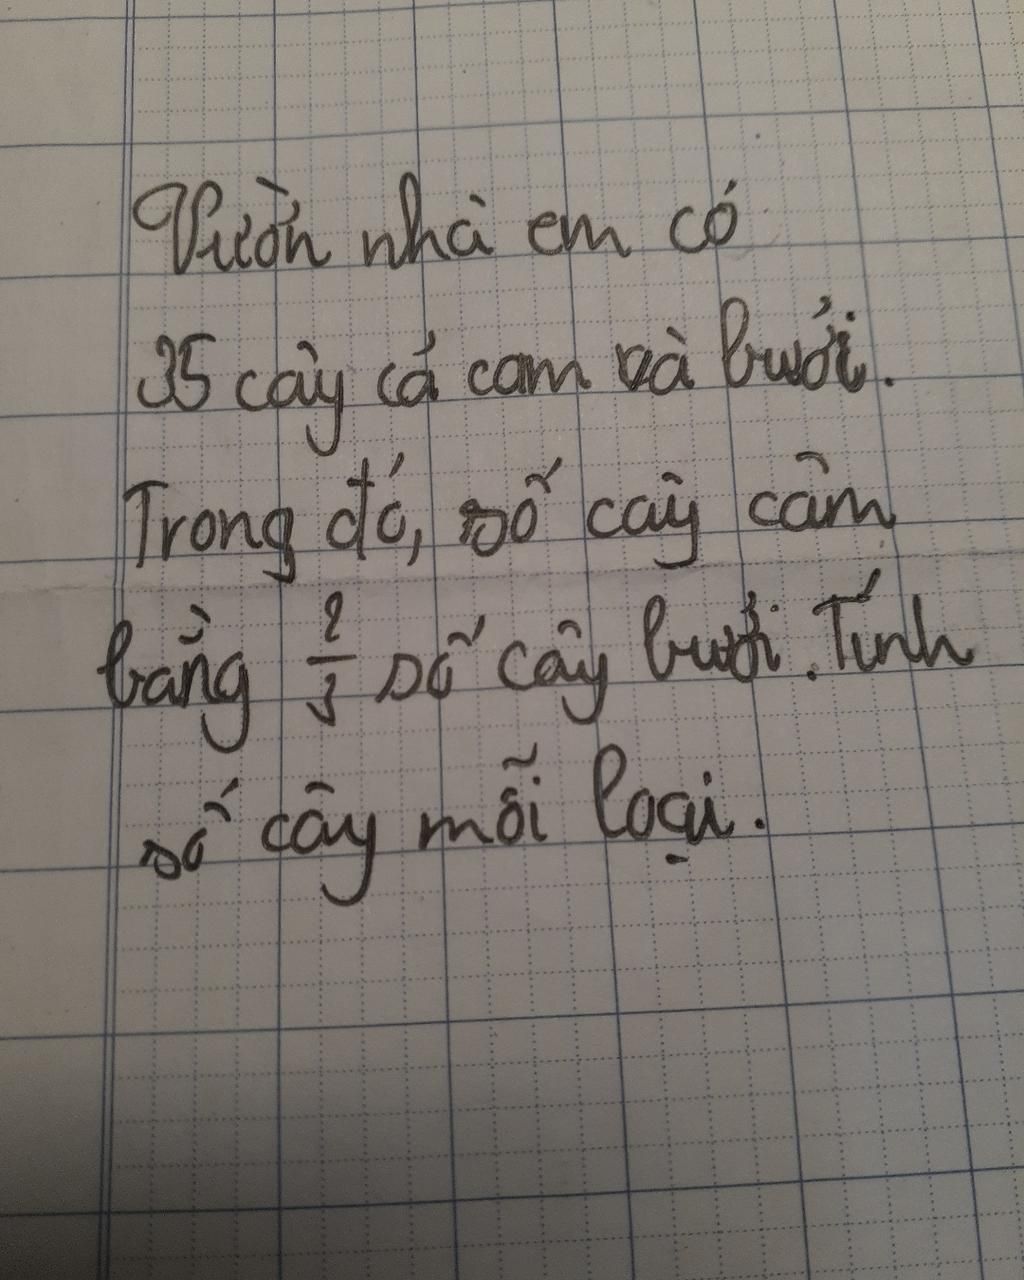 Vườn nhà em có
35 cây cả cam và bưởi.
Trong đó, số cây câm
bằng 2/3 số cây bưởi. Tính
số cây mỗi loại.